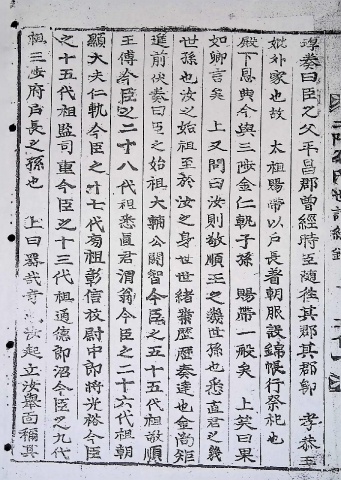 璋奏曰臣之父平昌郡曾經時亞隨徃其郡其郡卽 孝恭王
妣外家也故 太祖賜帶以戶長着朝服設錦帳行祭祀也
殿下恩典今與三陟金仁軌子孫 賜帶一般矣 上笑曰果
如卿言矣 上又問曰汝則敬順王之幾世孫也悉直君之幾
世孫也汝之始祖至於汝之身世世緖業歷歷奏達也金尙矩
進前伏奏曰臣之始祖大輔公閼智今臣之五十五代祖敬順
王傅今臣之二十八代祖悉直君渭翁今臣之二十六代祖朝
顯大夫仁軌今臣之十七代祖彰信校尉中郞將光裕今臣
之十五代祖監司重今臣之十三代祖通德郞沼今臣之九代
祖三陟府戶長之孫也 上曰 哉 汝起立汝擧面稱具